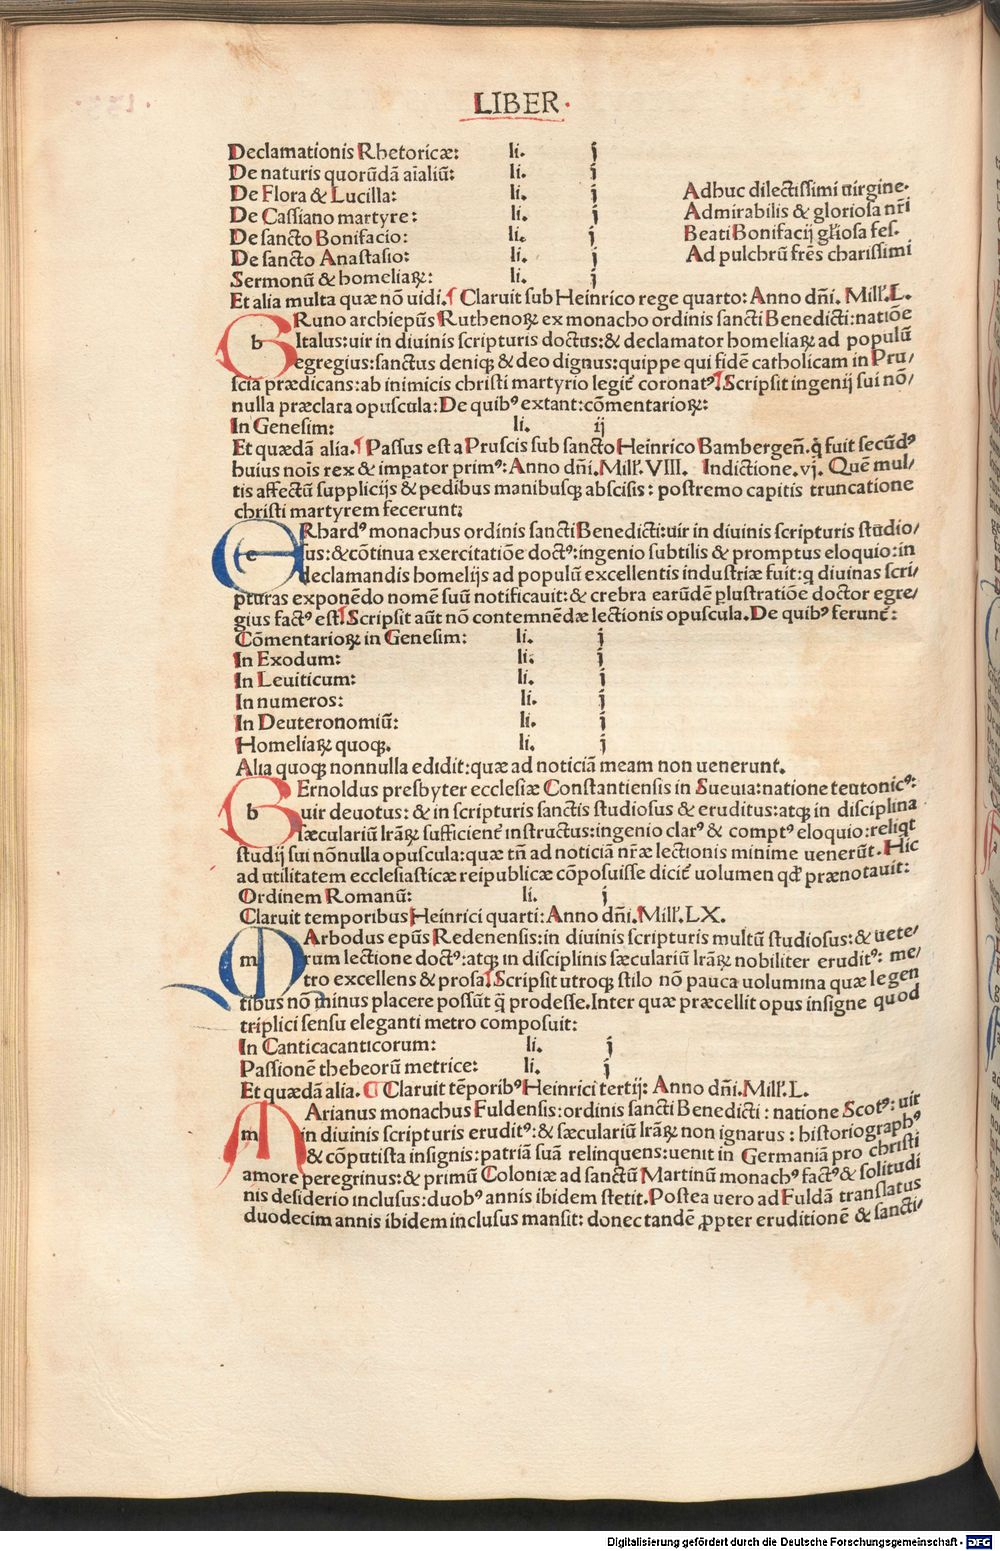 LIBER·
Declamationis Rhetoricæ: li. j
De naturis quorūdā aīaliū: li. j
De Flora & Lucilla: li. j Adhuc dilectissimi uirgine.
De Cassiano martyre: li. j Admirabilis & gloriosa nr̄i
De sancto Bonifacio: li. j Beati Bonifacij gl'iosa fes.
De sancto Anastasio: li. j Ad pulchrū fr̄es charissimi
Sermonū & homeliaꝝ: li. j
Et alia multa quæ nō uidi.¶ Claruit sub Heinrico rege quarto: Anno dn̄i. Mill'.L.
b RVno archiepūs Ruthenoꝝ ex monacho ordinis sancti Benedicti: natiōe
Italus: uir in diuinis scripturis doctus: & declamator homeliaꝝ ad populū
egregius: sanctus deniqꝫ & deo dignus: quippe qui fidē catholicam in Pru/
scia prædicans: ab inimicis christi martyrio legit̄ coronatꝰ.¶Scripsit ingenij sui nō/
nulla præclara opuscula: De quibꝰ extant: cōmentarioꝝ:
In Genesim: li. ij
Et quædā alia.¶ Passus est a Pruscis sub sancto Heinrico Bambergen̄. q̄ fuit secūdꝰ
huius nois rex & imꝑator primꝰ: Anno dn̄i. Mill'. VIII. Indictione. vj. Quē mul/
tis affectū supplicijs & pedibus manibusqꝫ abscisis: postremo capitis truncatione
christi martyrem fecerunt:
e Rhardꝰ monachus ordinis sancti Benedicti: uir in diuinis scripturis studio/
sus: & cōtinua exercitatiōe doctꝰ: ingenio subtilis & promptus eloquio: in
declamandis homelijs ad populū excellentis industriæ fuit: q diuinas scri/
pturas exponēdo nomē suū notificauit: & crebra earūdē ꝑlustratiōe doctor egre/
gius factꝰ est.¶Scripsit aūt nō contemnēdæ lectionis opuscula. De quibꝰ ferunt̄:
Cōmentarioꝝ in Genesim: li. j
In Exodum: li. j
In Leuiticum: li. j
In numeros: li. j
In Deuteronomiū: li. j
Homeliaꝝ quoqꝫ. li. j
Alia quoqꝫ nonnulla edidit: quæ ad noticiā meam non uenerunt.
b Ernoldus presbyter ecclesiæ Constantiensis in Sueuia: natione teutonicꝰ:
uir deuotus: & in scripturis sanctis studiosus & eruditus: atqꝫ in disciplina
sæculariū lr̄aꝝ sufficient̄ instructus: ingenio clarꝰ & comptꝰ eloquio: reliqt
studij sui nōnulla opuscula: quæ tn̄ ad noticiā nr̄æ lectionis minime uenerūt. Hic
ad utilitatem ecclesiasticæ reipublicæ cōposuisse dicit̄ uolumen qd' prænotauit:
Ordinem Romanū: li. j
Claruit temporibus Heinrici quarti: Anno dn̄i. Mill'. LX.
m Arbodus epūs Redenensis: in diuinis scripturis multū studiosus: & uete/
rum lectione doctꝰ: atqꝫ in disciplinis sæculariū lr̄aꝝ nobiliter eruditꝰ: me/
tro excellens & prosa.¶Scripsit utroqꝫ stilo nō pauca uolumina quæ legen
tibus nō minus placere possūt q̄ prodesse. Inter quæ præcellit opus insigne quod
triplici sensu eleganti metro composuit:
In Canticacanticorum: li. j
Passionē thebeorū metrice: li. j
Et quædā alia. ¶ Claruit tēporibꝰ Heinrici tertij: Anno dn̄i. Mill'. L.
m Arianus monachus Fuldensis: ordinis sancti Benedicti: natione Scotꝰ: uir
in diuinis scripturis eruditꝰ: & sæculariū lr̄aꝝ non ignarus: historiographꝰ
& cōputista insignis: patriā suā relinquens: uenit in Germaniā pro christi
amore peregrinus: & primū Coloniæ ad sanctū Martinū monachꝰ factꝰ & solitudi
nis desiderio inclusus: duobꝰ annis ibidem stetit. Postea uero ad Fuldā translatus
duodecim annis ibidem inclusus mansit: donec tandē ꝓpter eruditionē & sancti/
Digitalisierung gefördert durch die Deutsche Forschungsgemeinschaft - DFG